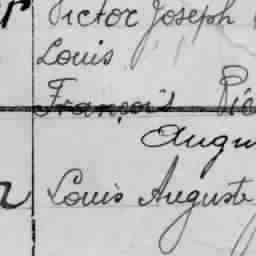 Victor Joseph
Louis
François
Louis Auguste